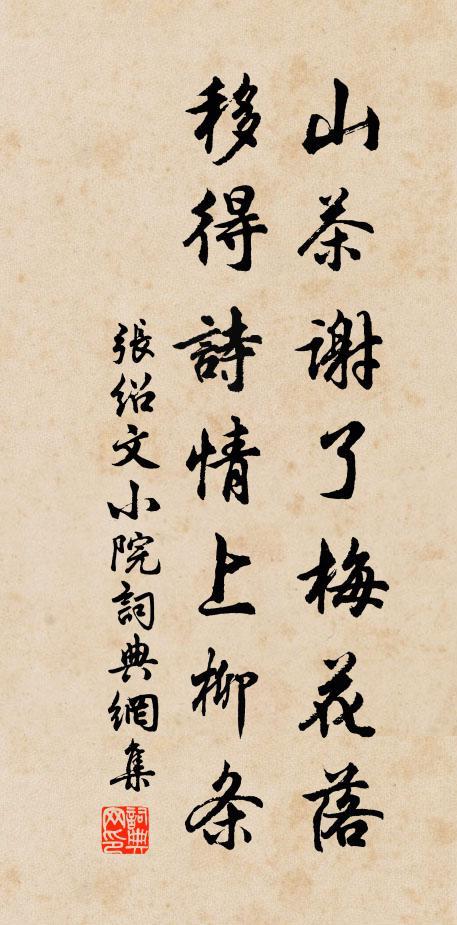 山茶谢了梅花落
移得詩情上柳条
張绍文小院詞典網集
詞典网印